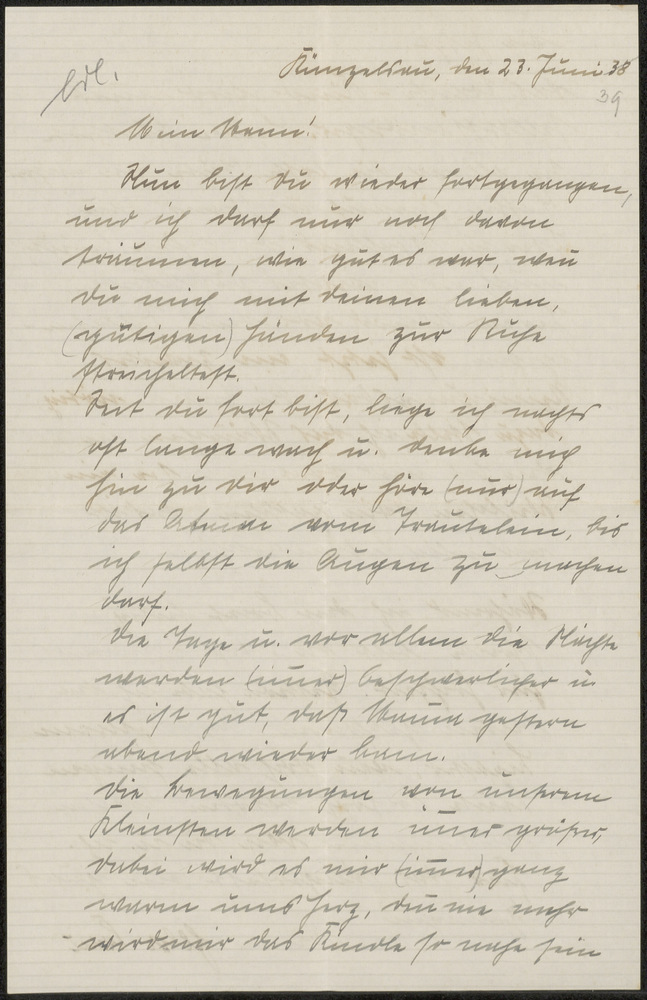 erl.
Künzelsau, den 23. Juni 38
39
Mein Mann!
Nun bist du wieder fortgegangen,
und ich darf nur noch davon
träumen, wie gut es war, wen̄
du mich mit deinen lieben,
(gütigen) Händen zur Ruhe
streicheltest.
Seit du fort bist, liege ich nachts
oft lange wach u. denke mich
hin zu dir oder höre (nur) auf
das Atmen vom Trautelein, bis
ich selbst die Augen zu machen
darf.
Die Tage u. vor allem die Nächte
werden (im̄er) beschwerlicher u.
es ist gut, daß Mama gestern
abend wieder kam.
Die Bewegungen von unserem
Kleinsten werden im̄er größer,
dabei wird es mir (im̄er) ganz
warm ums Herz, den̄ nie mehr
wird mir das Kindle so nahe sein